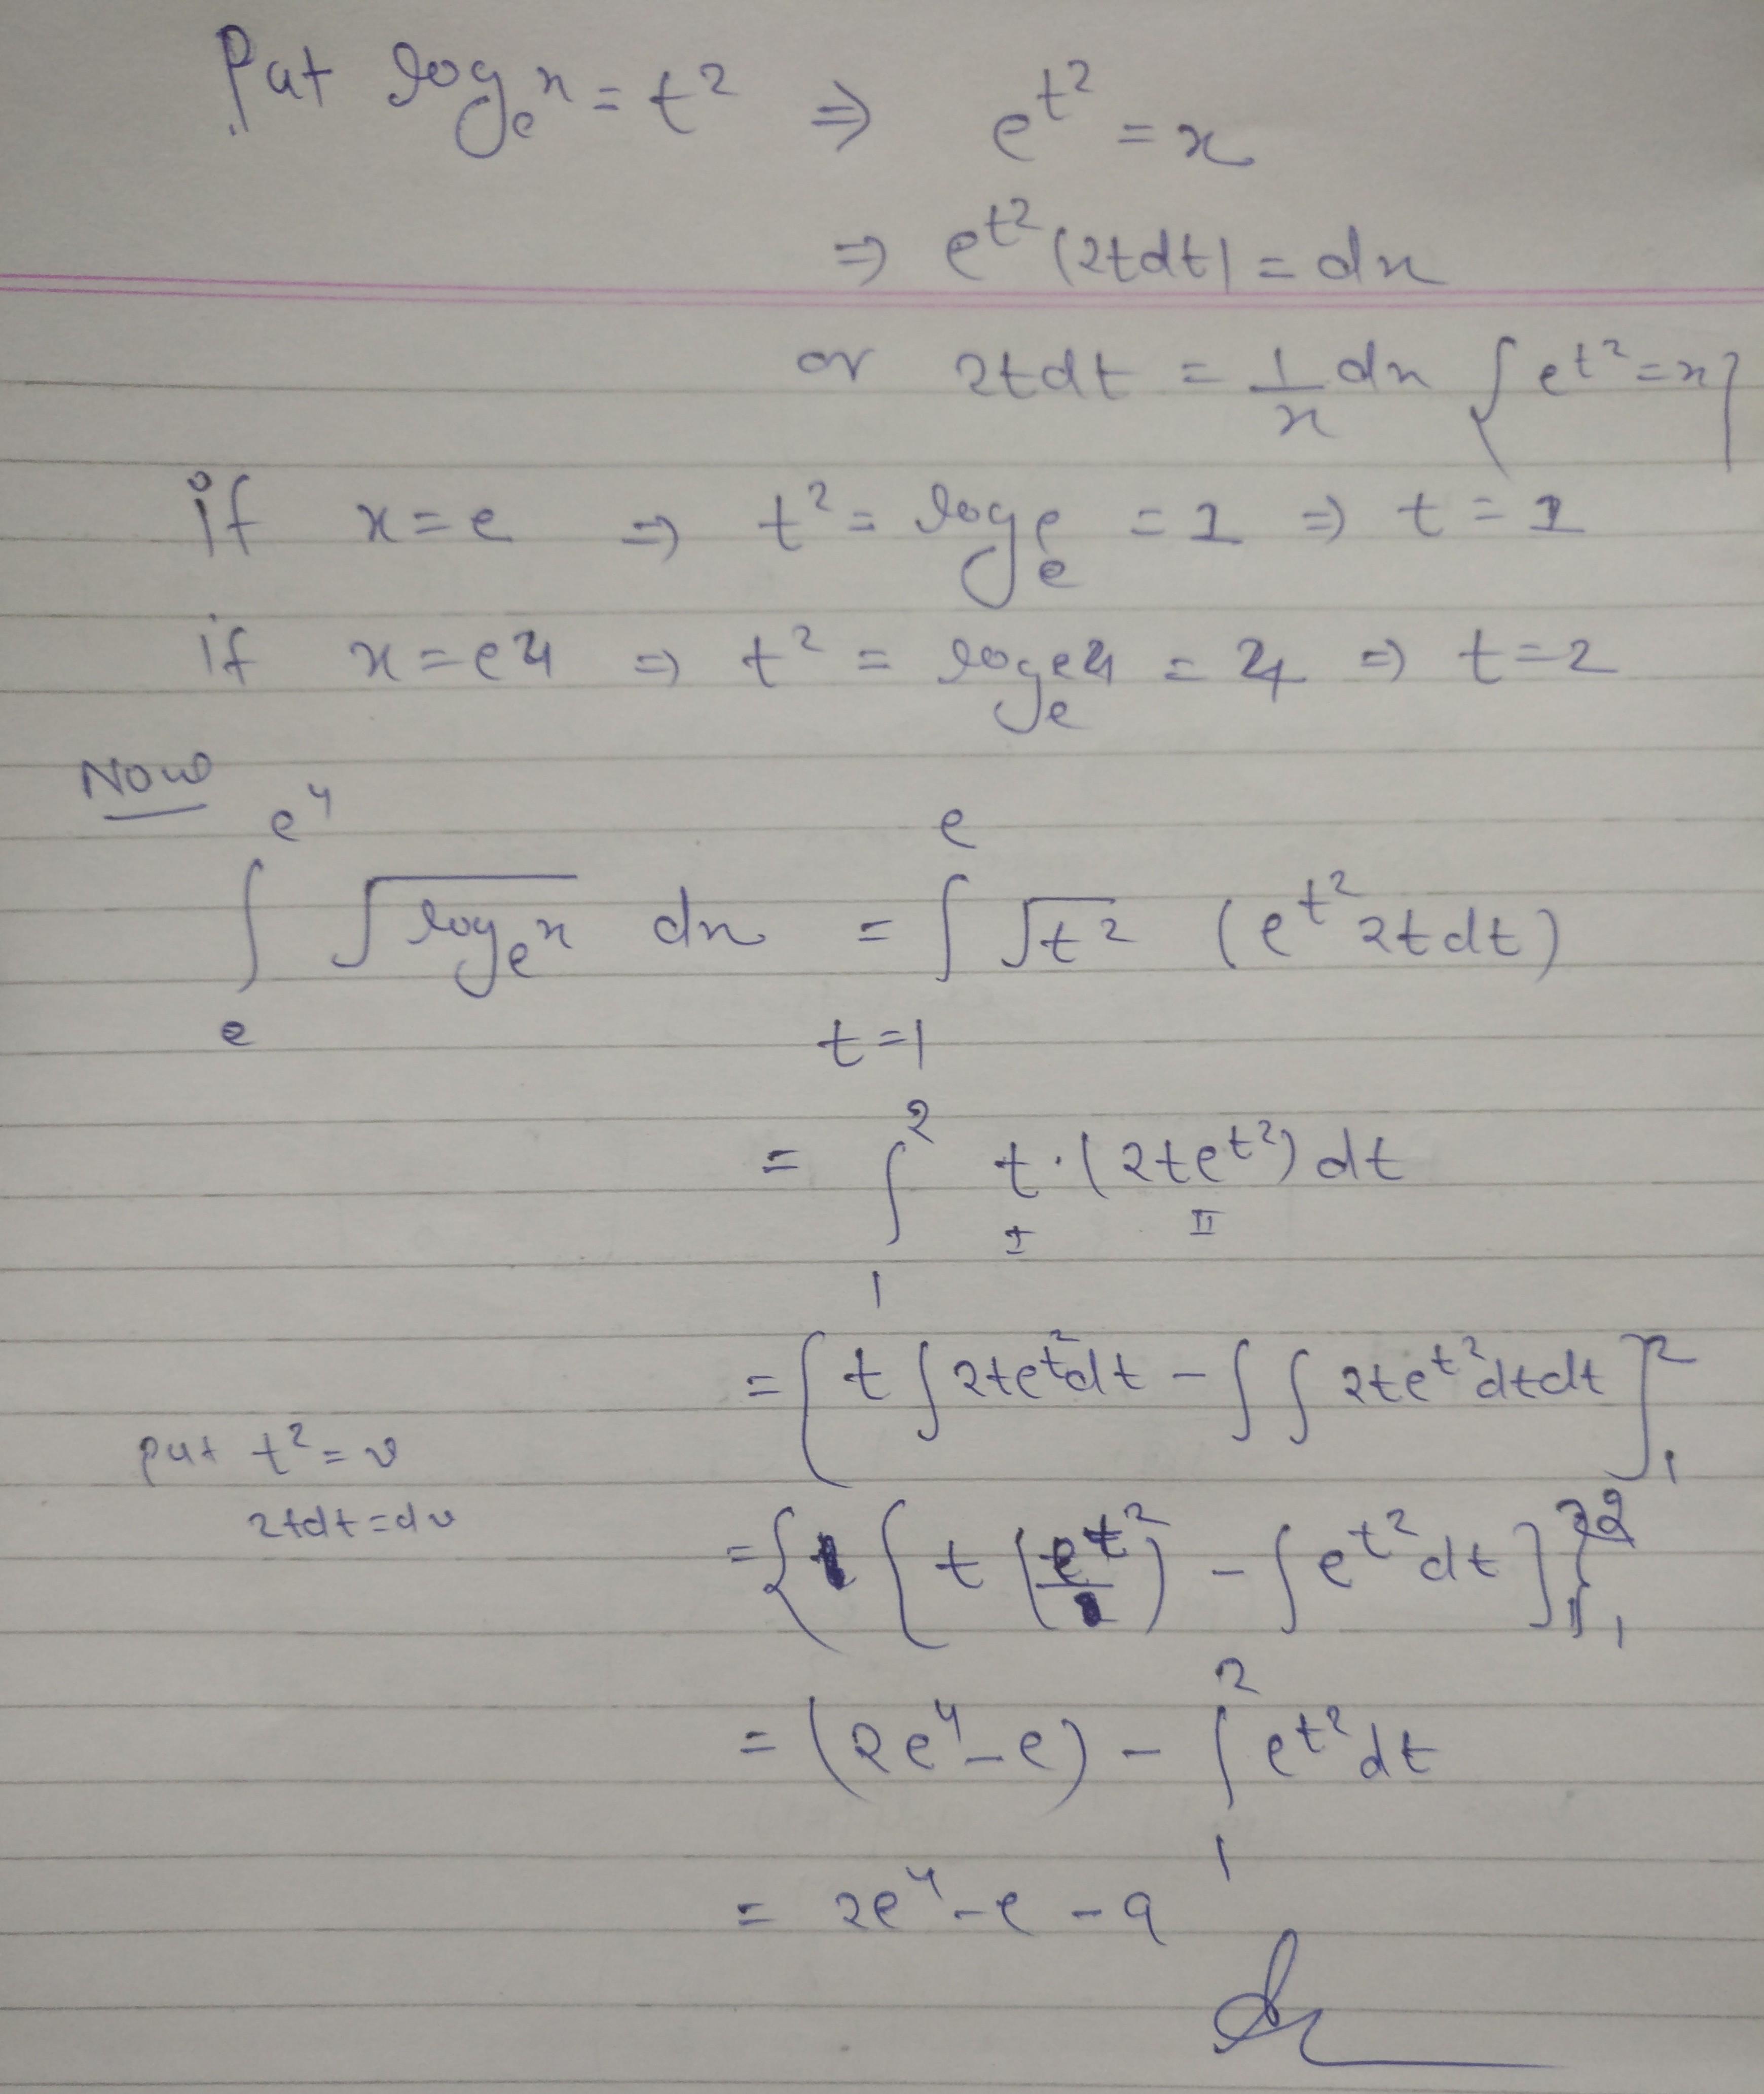 Put log_e x = t² ⇒ e^{t²} = x
⇒ e^{t²} (2tdt) = dx
or 2tdt = 1/x dx {e^{t²} = x}
if x = e ⇒ t² = log_e e = 1 ⇒ t = 1
if x = e4 ⇒ t² = log_e e4 = 4 ⇒ t = 2
Now
∫_e^{e⁴} √(log_e x) dx = ∫_{t=1}^{e} √t² (e^{t²} 2tdt)
= ∫_1^2 t·(2te^{t²}) dt
I II
= [t ∫ 2te^{t²}dt - ∫ ∫ 2te^{t²}dtdt]_1^2
put t² = v
2tdt = dv
= { [ t (e^{t²}/1) - ∫ e^{t²}dt ] }_1^2
= (2e⁴ - e) - ∫_1^2 e^{t²}dt
= 2e⁴ - e - a